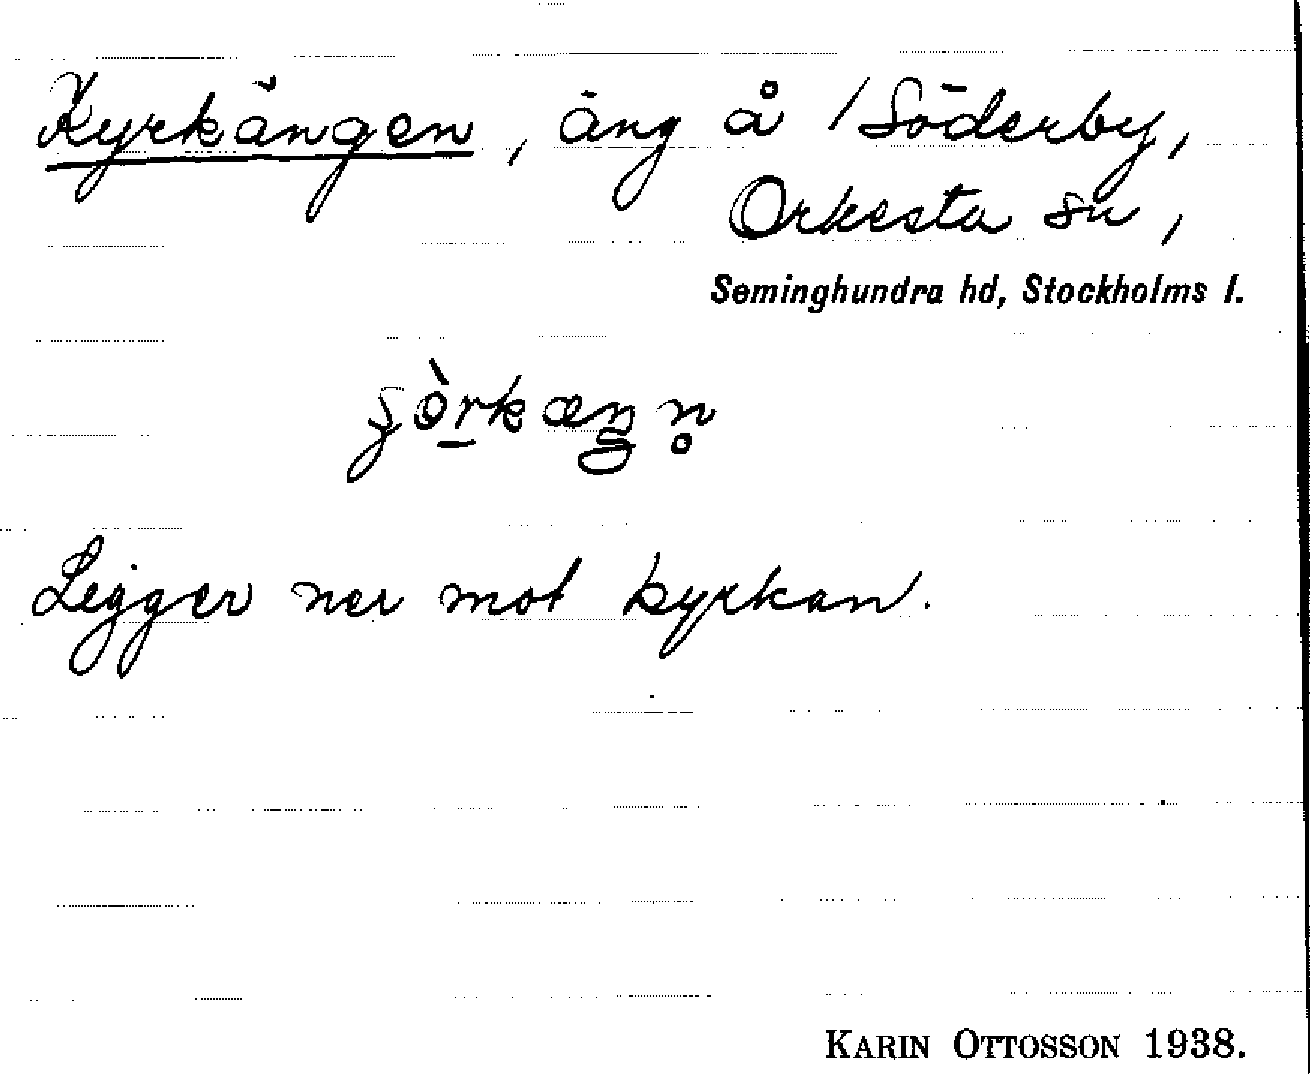 Kyrkängen, äng å /Söderby,
Orkesta sn,
Seminghundra hd, Stockholms l.
Ligger ner mot kyrkan.
KARIN OTTOSSON 1938.